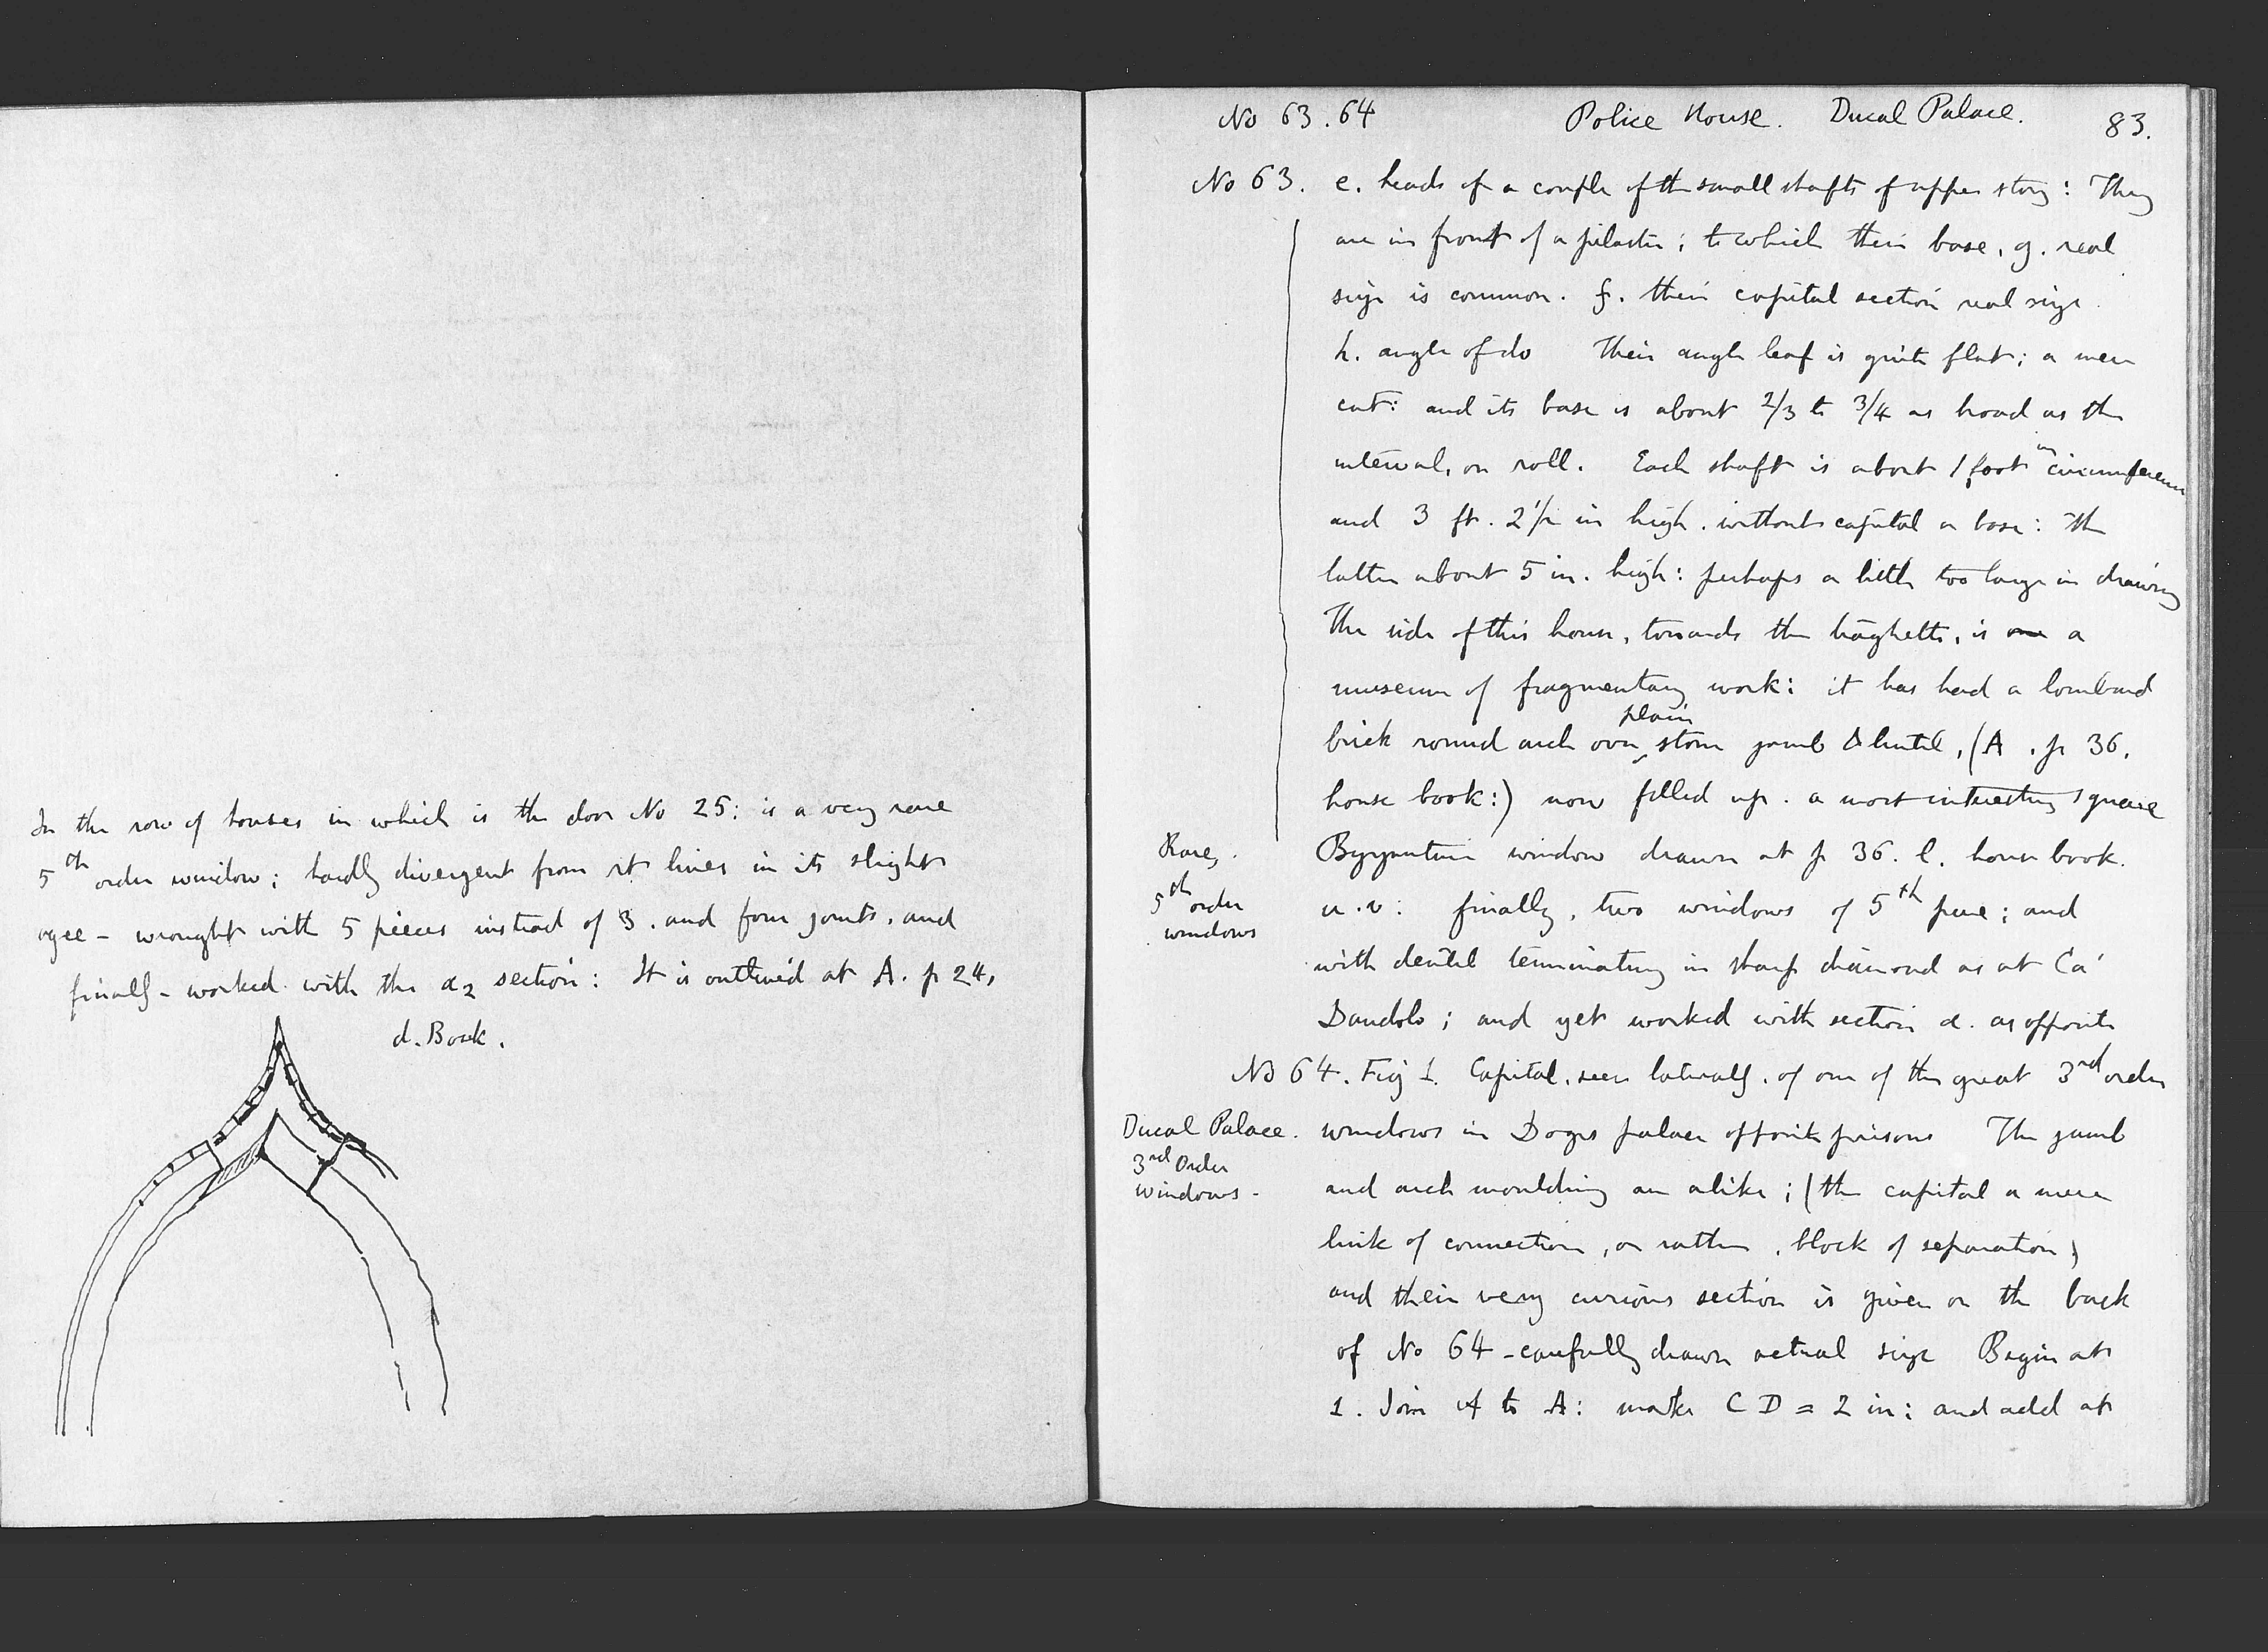 In the row of houses in which is the door No 25: is a very rare
5th order window; hardly divergent from rt lines in its slight
ogee - wrought with 5 pieces instead of 3. and four joints, and
finally - worked with the a2 section: It is outlined at A. p 24,
d. Book.
No 63.64 Police House. Ducal Palace. 83.
No 63. e. heads of a couple of the small shafts of upper story: They
are in front of a pilaster; to which their base, g. real
size is common. f. their capital section real size.
h. angle of do Their angle leaf is quite flat; a mere
cut: and its base is about 2/3 to 3/4 as broad as the
interval, or roll. Each shaft is about 1 foot in circumference
and 3 ft. 2 1/2 in high. without capital or base: the
latter about 5 in. high: perhaps a little too large in drawing
The side of this house, towards the traghetto, is one a
museum of fragmentary work: it has had a lombard
brick round arch over plain stone jamb & lintel, (A. p 36,
house book:) now filled up. a most interesting square
Rare,
Byzantine window drawn at p 36. l. house book.
5th order
windows
u.v: finally, two windows of 5th pure; and
with dentil terminating in sharp diamond as at Ca'
Dandolo; and yet worked with section a. as opposite
No 64. Fig 1. Capital, seen laterally, of one of the great 3rd order
Ducal Palace.
3rd Order
windows -
windows in Doges palace opposite prisons The jamb
and arch moulding are alike; (the capital a mere
link of connection, or rather, block of separation)
and their very curious section is given on the back
of No 64 - carefully drawn actual size Begin at
1. Join A to A: make C D = 2 in: and add at